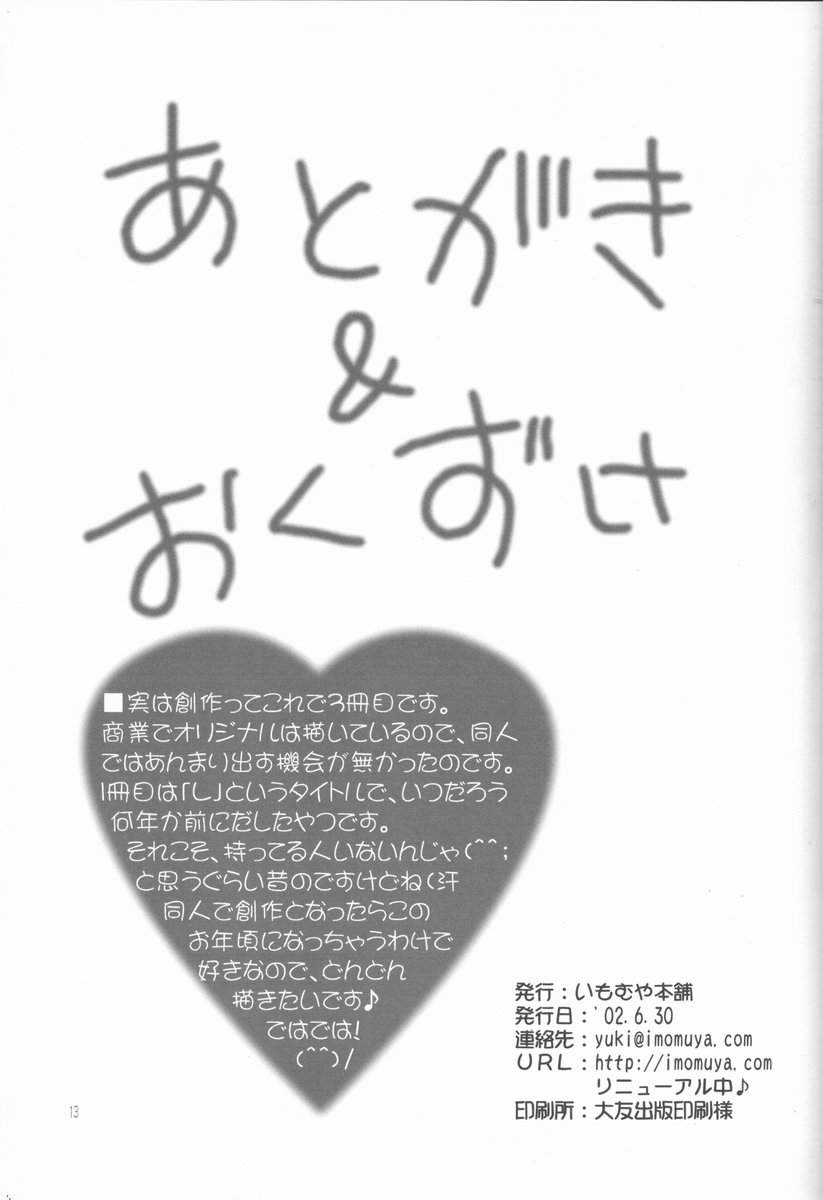 あとがき
&
おくずけ
■実は創作ってこれで3冊目です。
商業でオリジナルは描いているので、同人
ではあんまり出す機会が無かったのです。
1冊目は「し」というタイトルで、いつだろう
何年か前にだしたやつです。
それこそ、持ってる人いないんじゃ(^^;
と思うぐらい昔のですけどね(汗
同人で創作となったらこの
お年頃になっちゃうわけで
好きなので、どんどん
描きたいです♪
ではでは!
(^^)/
発行:いもむや本舗
発行日:'02.6.30
連絡先:yuki@imomuya.com
URL:http://imomuya.com
リニューアル中♪
印刷所:大友出版印刷様
13